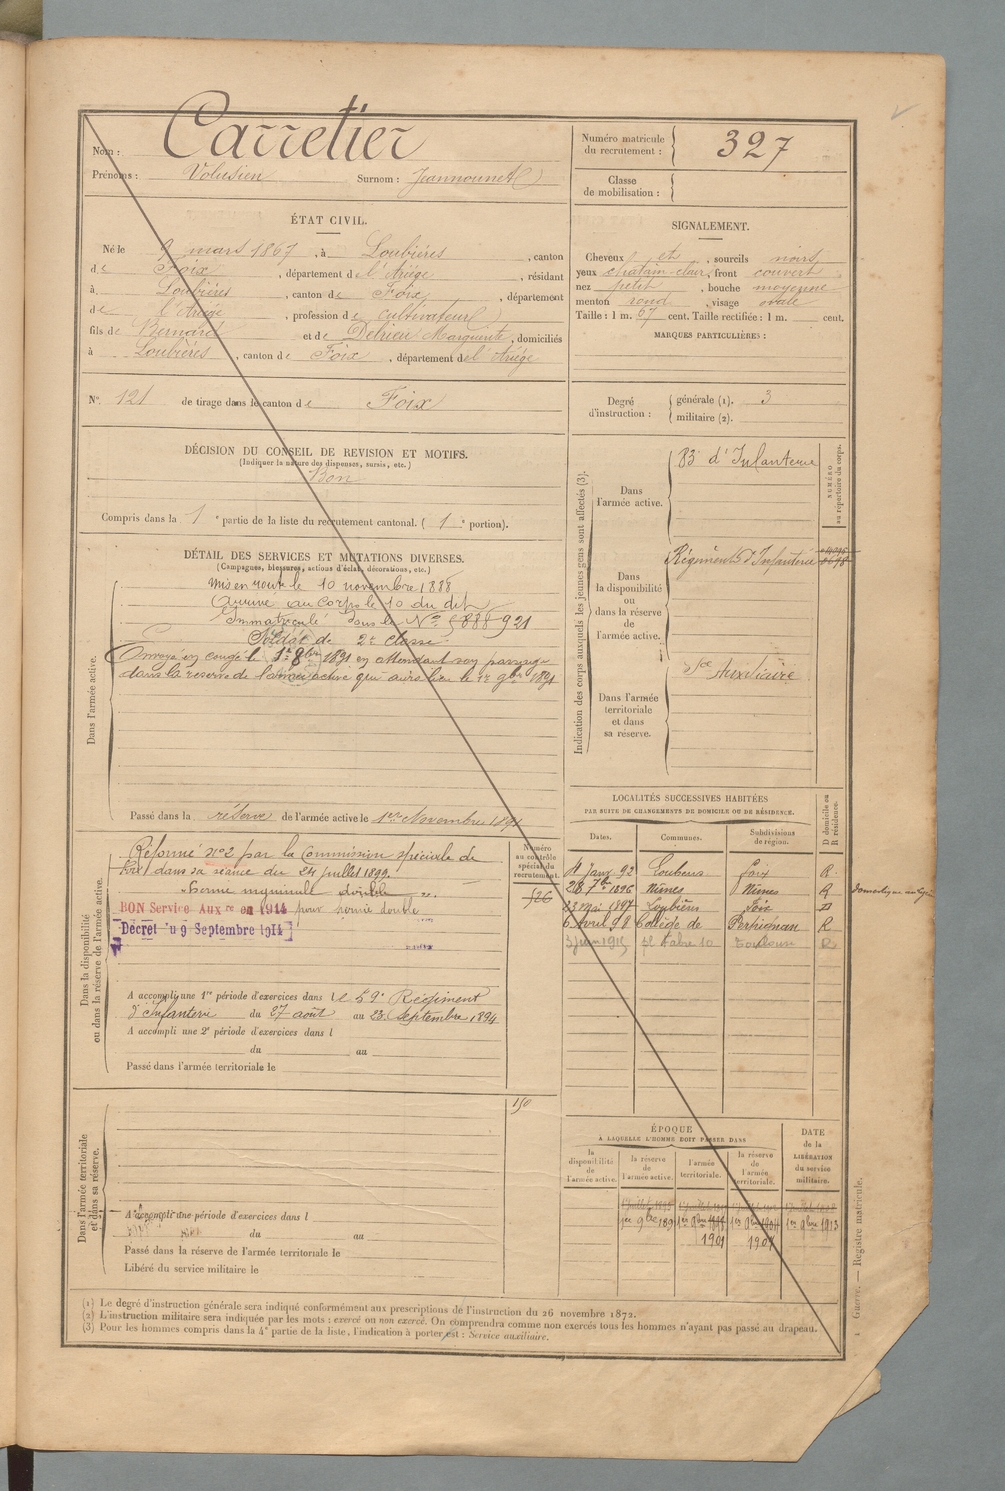 Nom : Carretier
Prénoms : Volusien Surnom : Jeannounet
Numéro matricule du recrutement : 327
Classe de mobilisation :
ÉTAT CIVIL.
Né le 9 mars 1867, à Loubières, canton
de Foix, département de l'Ariège, résidant
à Loubières, canton de Foix, département
de l'Ariège, profession de cultivateur
fils de Bernard et de Delrieu Marguerite, domiciliés
à Loubières, canton de Foix, département de l'Ariège
N° 121 de tirage dans le canton de Foix
SIGNALEMENT.
Cheveux et, sourcils noirs
yeux chatain clair, front couvert
nez petit, bouche moyenne
menton rond, visage ovale
Taille : 1 m. 67 cent. Taille rectifiée : 1 m. cent.
MARQUES PARTICULIÈRES :
Degré d'instruction : générale (1). 3
militaire (2).
DÉCISION DU CONSEIL DE REVISION ET MOTIFS.
(Indiquer la nature des dispenses, sursis, etc.)
Bon
Compris dans la 1e partie de la liste du recrutement cantonal. (1e portion).
DÉTAIL DES SERVICES ET MUTATIONS DIVERSES.
(Campagnes, blessures, actions d'éclat, décorations, etc.)
Dans l'armée active.
Mis en route le 10 novembre 1888
Arrivé au Corps le 10 du dit
Immatriculé sous le N° 5888 921
Soldat de 2e classe
Envoyé en congé le 1er 8bre 1891 en attendant son passage
dans la reserve de l'armée active qui aura lieu le 1er 9bre 1891
Passé dans la réserve de l'armée active le 1er Novembre 1891
Indication des corps auxquels les jeunes gens sont affectés (3).
NUMÉRO au répertoire du corps.
Dans l'armée active.
83e d'Infanterie
Dans la disponibilité ou dans la réserve de l'armée active.
Régiment d'Infanterie
Dans l'armée territoriale et dans sa réserve.
Sce Auxiliaire
Dans la disponibilité ou dans la réserve de l'armée active.
Numéro au contrôle spécial du recrutement.
526
Réformé n°2 par la Commission spéciale de
Foix dans sa séance du 24 juillet 1899.
"hernie inguinale double".
BON Service Auxre en 1914 pour hernie double
Décret du 9 Septembre 1914
A accompli une 1re période d'exercices dans le 59e Régiment
d'Infanterie du 27 août au 23 Septembre 1894
A accompli une 2e période d'exercices dans l
du au
Passé dans l'armée territoriale le
LOCALITÉS SUCCESSIVES HABITÉES
PAR SUITE DE CHANGEMENTS DE DOMICILE OU DE RÉSIDENCE.
Dates. Communes. Subdivisions de région. D domicile ou R résidence.
11 Janv 92 Loubens Foix R.
28 7bre 1896 Nîmes Nîmes R
23 Mai 1897 Loubières Foix D
6 Avril 98 Perpignan R
3 Juin 1915 Toulouse R
Dans l'armée territoriale et dans sa réserve.
150
A accompli une période d'exercices dans l
du au
Passé dans la réserve de l'armée territoriale le
Libéré du service militaire le
ÉPOQUE
A LAQUELLE L'HOMME DOIT PASSER DANS
la disponibilité de l'armée active.
la réserve de l'armée active.
l'armée territoriale.
la réserve de l'armée territoriale.
DATE de la LIBÉRATION du service militaire.
1er 9bre 1891 1er 9bre 1er 9bre 1er 9bre 1913
1901 1907
(1) Le degré d'instruction générale sera indiqué conformément aux prescriptions de l'instruction du 26 novembre 1872.
(2) L'instruction militaire sera indiquée par les mots : exercé ou non exercé. On comprendra comme non exercés tous les hommes n'ayant pas passé au drapeau.
(3) Pour les hommes compris dans la 4e partie de la liste, l'indication à porter est : Service auxiliaire.
Guerre. — Registre matricule.